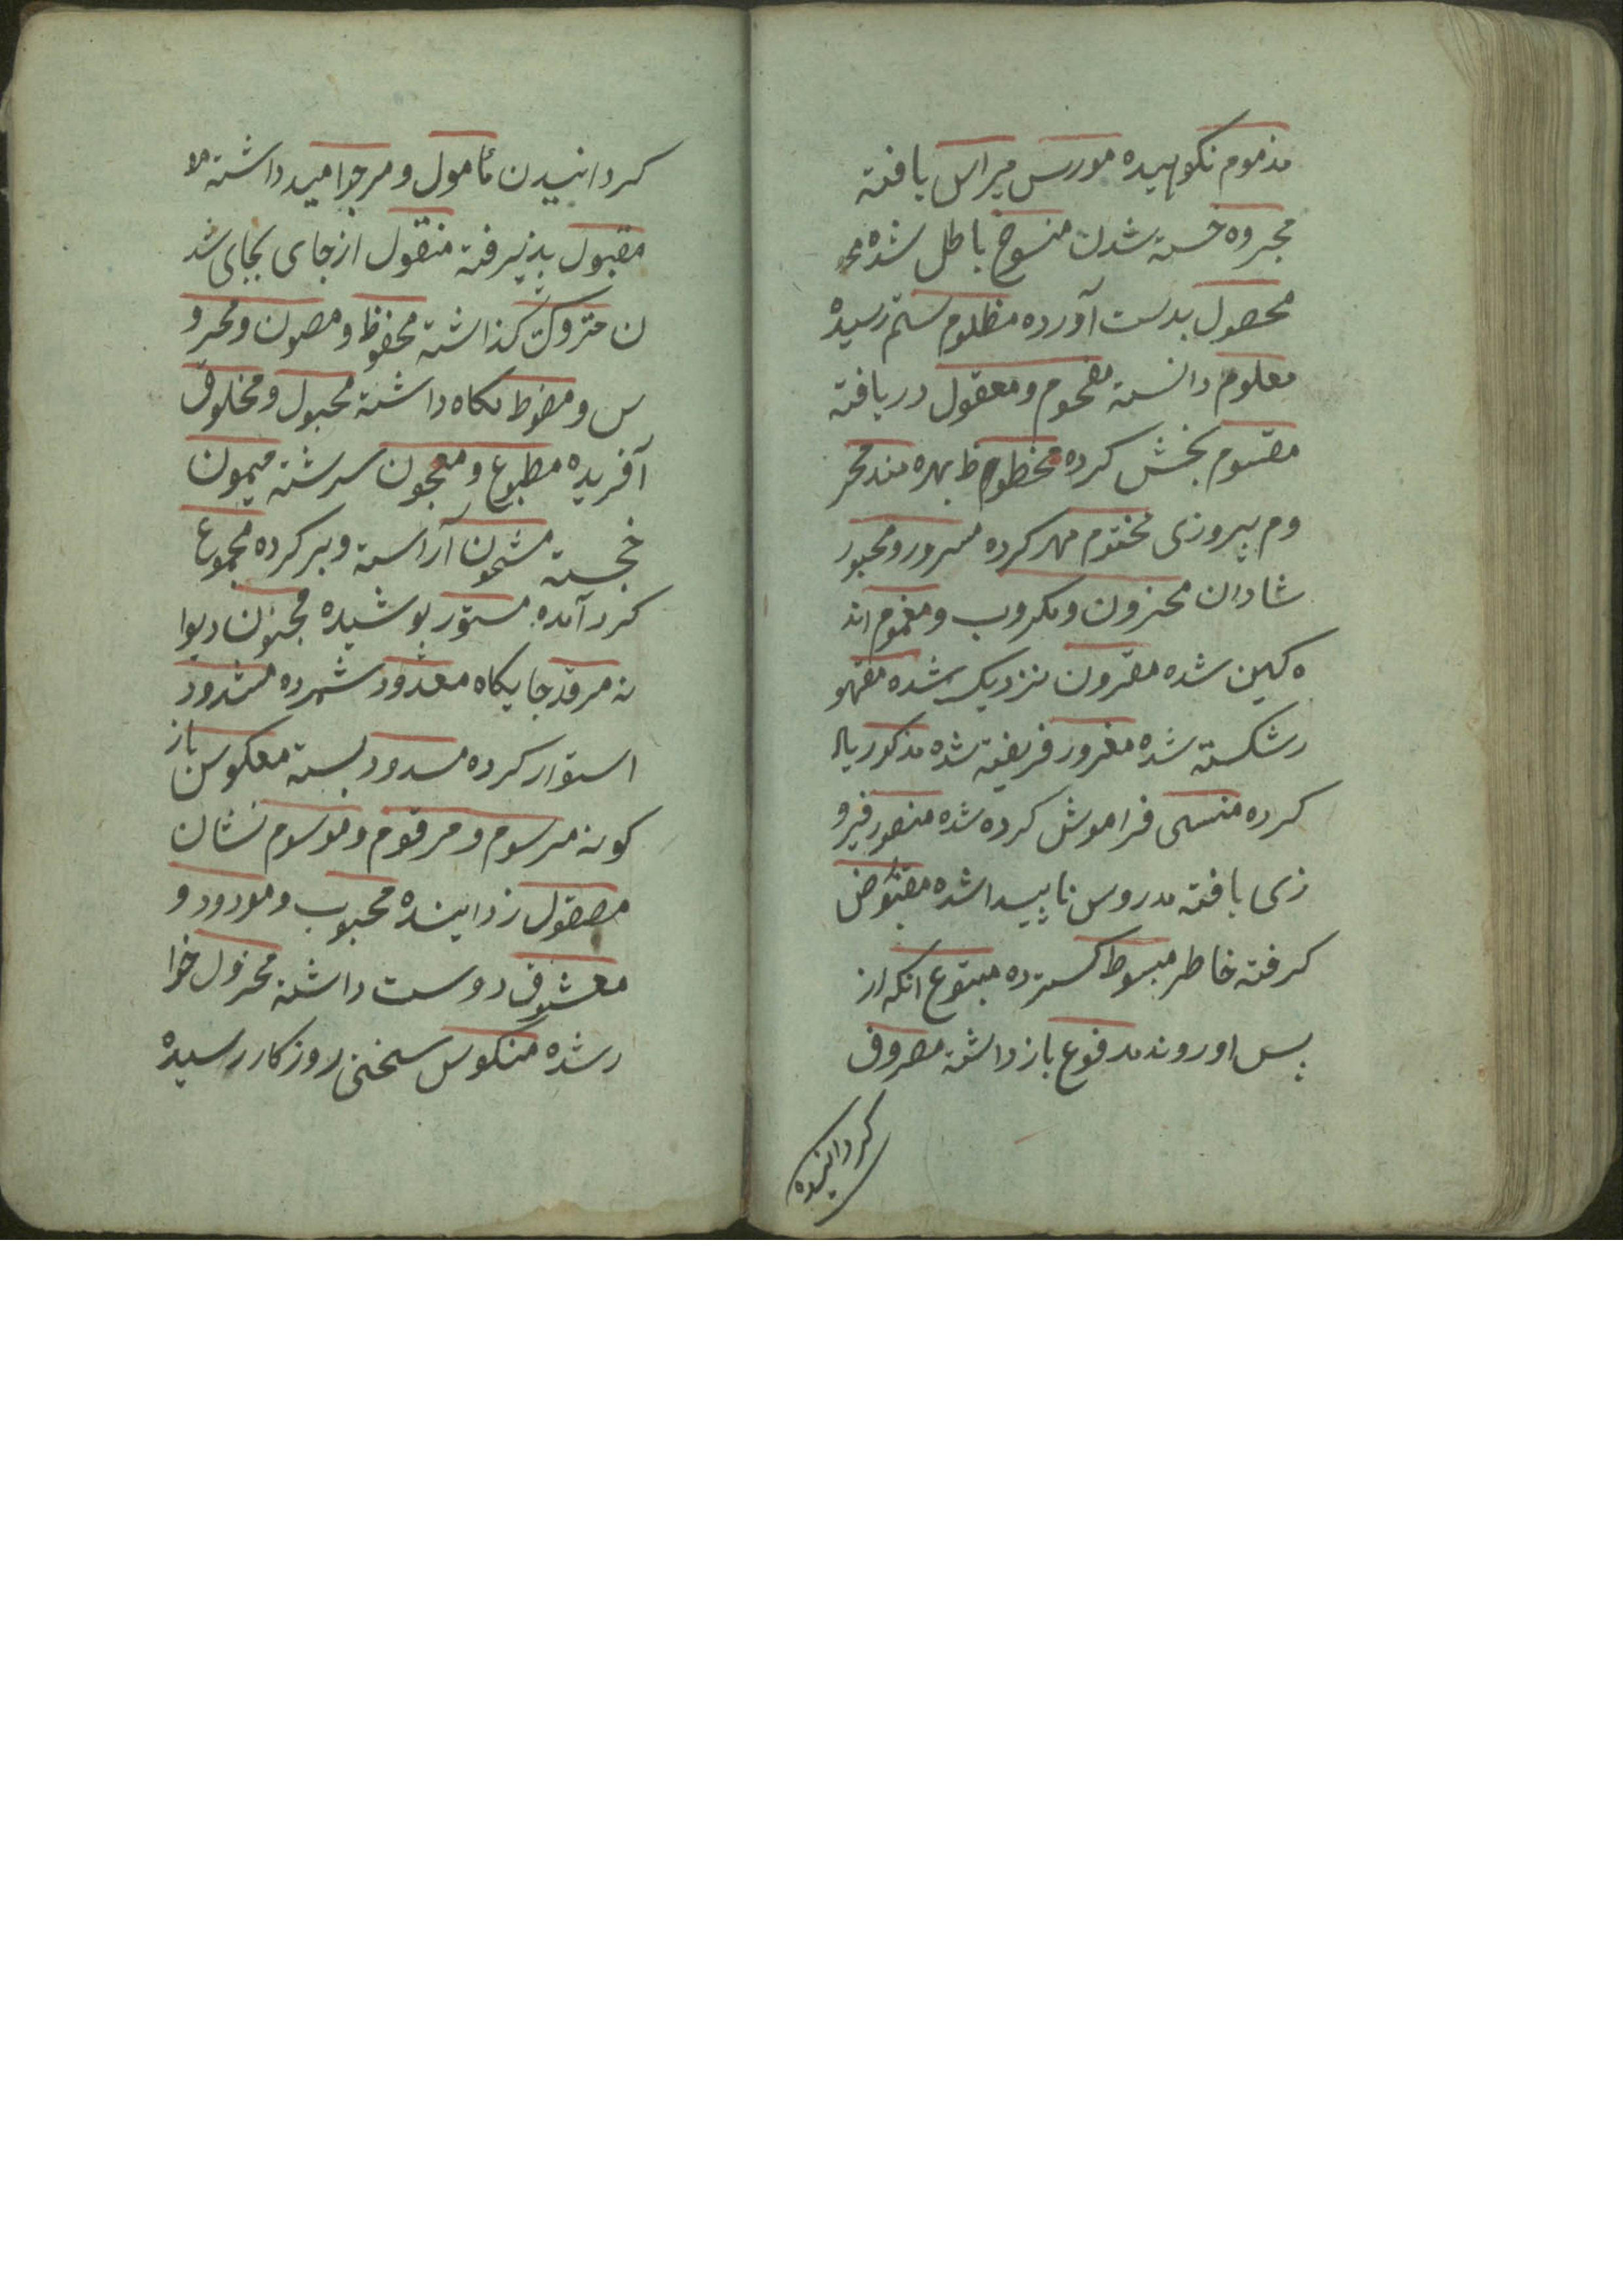 مذموم نکوهیده مورس میراس یافته
مجروه خسته شدن منسوخ باطل شده مح
محصول بدست آورده مظلوم ستم رسیده
معلوم دانسته مفحوم و معقول دریافته
مقسوم بخش کرده مخطوظ بهره مند محر
وم پیروزی مختوم مهر کرده مسرور و محبور
شادان محزون و مکروب و مغموم اند
ه کین شده مقرون نزدیک شده مقهو
ر شکسته شده مغرور فریفته شده مذکور یاد
کرده منسی فراموش کرده شده منصور فیرو
زی یافته مدروس ناپیدا شده مقبوض
کرفته خاطر مبسوط کسترده مبتوع انکه از
پس او روند مدفوع باز داشته مصروف
کردانیده
کردانیدن مأمول و مرجوا مید داشته
مقبول پذیرفته منقول از جای بجای شد
ن متروک کذاشته محفوظ و مصون و محرو
س و مضوط نکاه داشته مجبول و مخلوق
آفریده مطبوع و معجون سرشته میمون
خجسته مشحون آراسته و پر کرده مجموع
کرد آمده مستور پوشیده مجنون دیوا
نه مرقد جایکاه معدود شمرده مشدود
استوار کرده مسدود بسته معکوس باز
کونه مرسوم و مرقوم و موسوم نشان
مصقول زداینده محبوب و مودود و
معشوق دوست داشته مخزول خوا
ر شده منکوس سختی روزکار رسیده